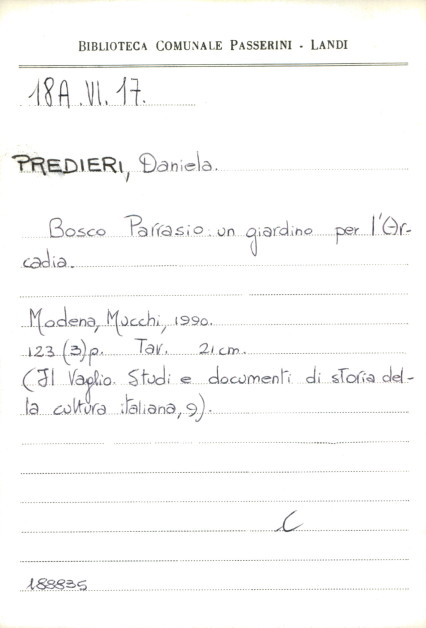 BIBLIOTECA COMUNALE PASSERINI - LANDI
18A.VI.17.
PREDIERI, Daniela.
Bosco Parrasio: un giardino per l'Ar-
cadia.
Modena, Mucchi, 1990.
123 (3) p. Tav. 21 cm.
(Il Vaglio. Studi e documenti di storia del-
la cultura italiana, 9).
C
188835